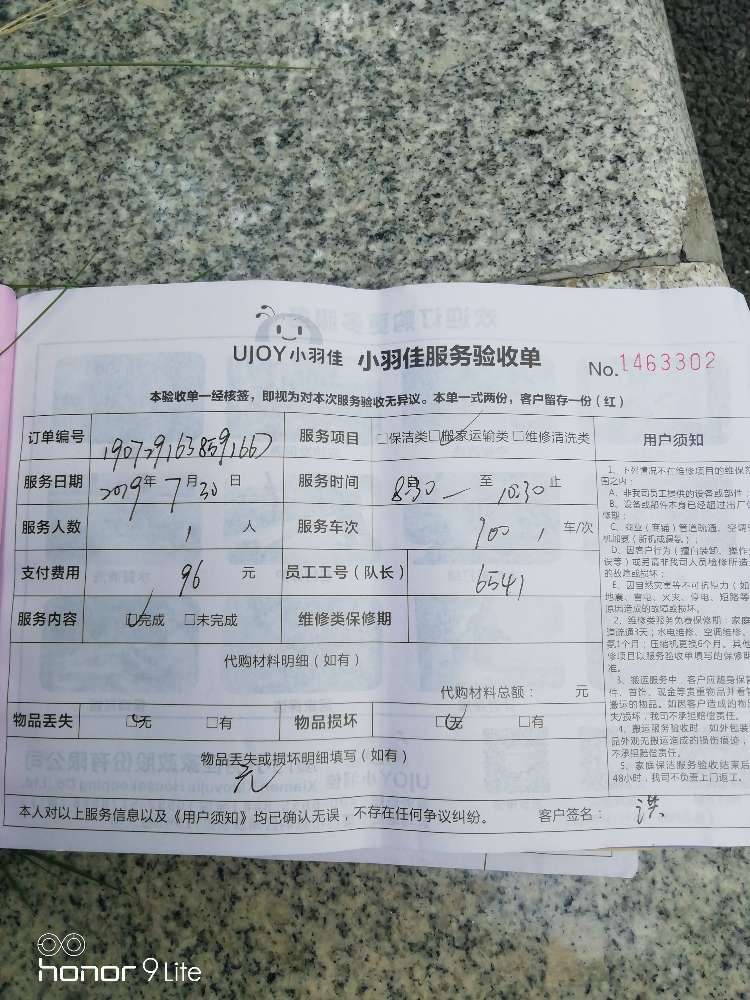 UJOY小羽佳 小羽佳服务验收单 No.1463302
本验收单一经核签，即视为对本次服务验收无异议。本单一式两份，客户留存一份（红）
订单编号 190729163859166 服务项目 □保洁类□搬家运输类□维修清洗类 用户须知
服务日期 2019年7月30日 服务时间 8:30 至 10:30 止
服务人数 1 人 服务车次 1 车/次
支付费用 96 元 员工工号（队长） 6541
服务内容 □完成 □未完成 维修类保修期
代购材料明细（如有）
代购材料总额： 元
物品丢失 □无 □有 物品损坏 □无 □有
物品丢失或损坏明细填写（如有）
无
本人对以上服务信息以及《用户须知》均已确认无误，不存在任何争议纠纷。 客户签名： 洪
1、下列情况不在维修项目的维保范
围之内：
A、非我司员工提供的设备或部件；
B、设备或部件本身已经超过出厂
修期；
C、商业（商铺）管道疏通、空调
机加氨（新机或漏氨）；
D、因客户行为（擅自装卸、操作
误等）或另请非我司人员检修所造
的故障或损坏；
E、因自然灾害等不可抗原力（如
地震、雷电、火灾、停电、短路等
原因造成的故障或损坏。
2、维修类服务免费保修期：家庭
道疏通3天；水电维修、空调维修、
氨1个月；压缩机更换6个月。其他
修项目以服务验收单填写的保修期
准。
3、搬运服务中，客户应随身保管
件、首饰、现金等贵重物品并看管
搬运的物品。如因客户造成的物
失/损坏，我司不承担赔偿责任。
4、搬运服务验收时，如外包装
品外观无搬运造成的损伤痕迹，
不承担赔偿责任。
5、家庭保洁服务验收结束后
48小时，我司不负责上门返工。
honor 9 Lite